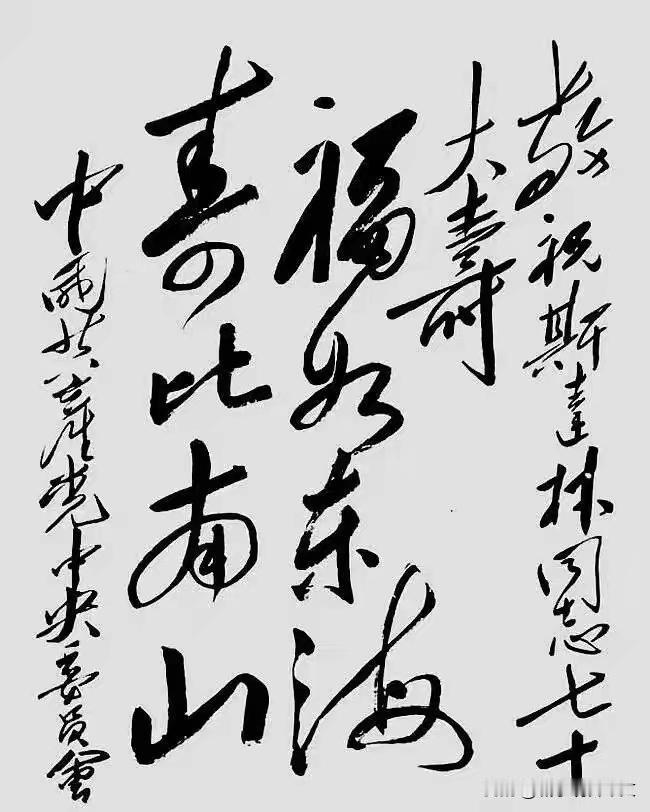 敬祝斯達林同志七十
大壽
福如东海
寿比南山
中國共产党中央委員會